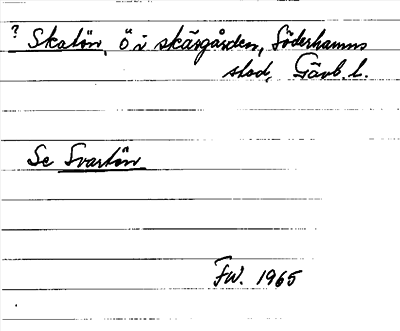 ? Skatön, ö i skärgården, Söderhamns
stad, Gävb. l.
Se Svartön
FW. 1965